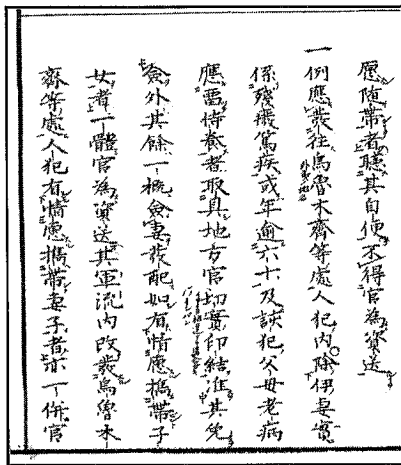 愿随帶者聽其自便不得官為資送
一例應發往烏魯木齊等處人犯內除伊妻實
係殘癈篤疾或年逾六十及該犯父母老病
應畱侍養者取具地方官切實印結准其免
僉外其餘一概僉妻發配如有情愿攜帶子
女者一體官為資送其軍流內改發烏魯木
齊等處人犯有情愿攜帶妻子者亦一併官